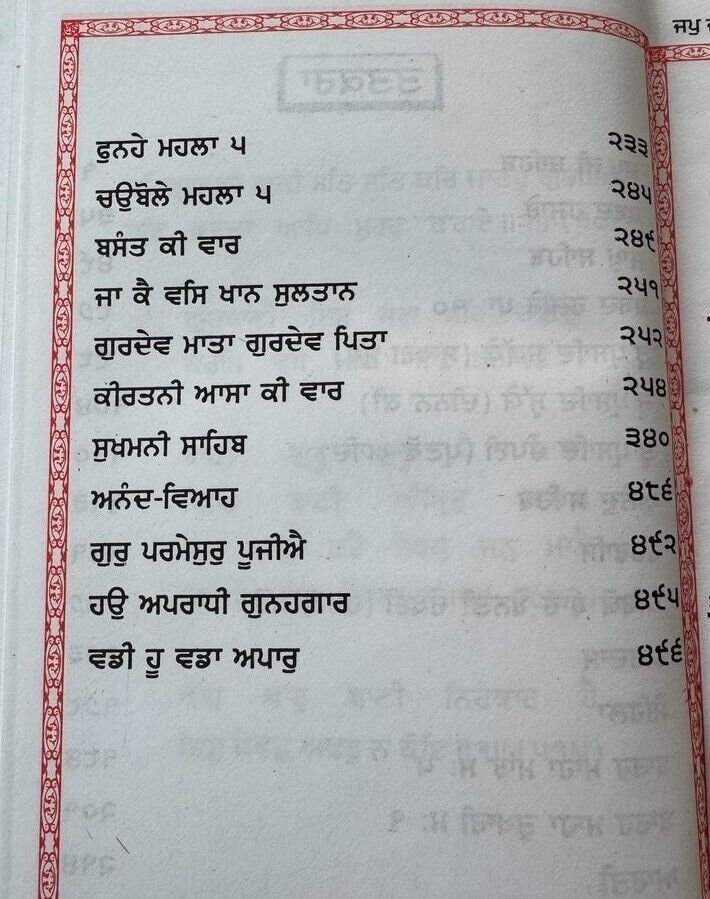 ਜਪੁ
ਫੁਨਹੇ ਮਹਲਾ ੫ ੨੩੩
ਚਉਬੋਲੇ ਮਹਲਾ ੫ ੨੪੫
ਬਸੰਤ ਕੀ ਵਾਰ ੨੪੯
ਜਾ ਕੈ ਵਸਿ ਖਾਨ ਸੁਲਤਾਨ ੨੫੧
ਗੁਰਦੇਵ ਮਾਤਾ ਗੁਰਦੇਵ ਪਿਤਾ ੨੫੨
ਕੀਰਤਨੀ ਆਸਾ ਕੀ ਵਾਰ ੨੫੪
ਸੁਖਮਨੀ ਸਾਹਿਬ ੩੪੦
ਅਨੰਦ-ਵਿਆਹ ੪੮੬
ਗੁਰੁ ਪਰਮੇਸੁਰੁ ਪੂਜੀਐ ੪੯੨
ਹਉ ਅਪਰਾਧੀ ਗੁਨਹਗਾਰ ੪੯੫
ਵਡੀ ਹੂ ਵਡਾ ਅਪਾਰੁ ੪੯੬